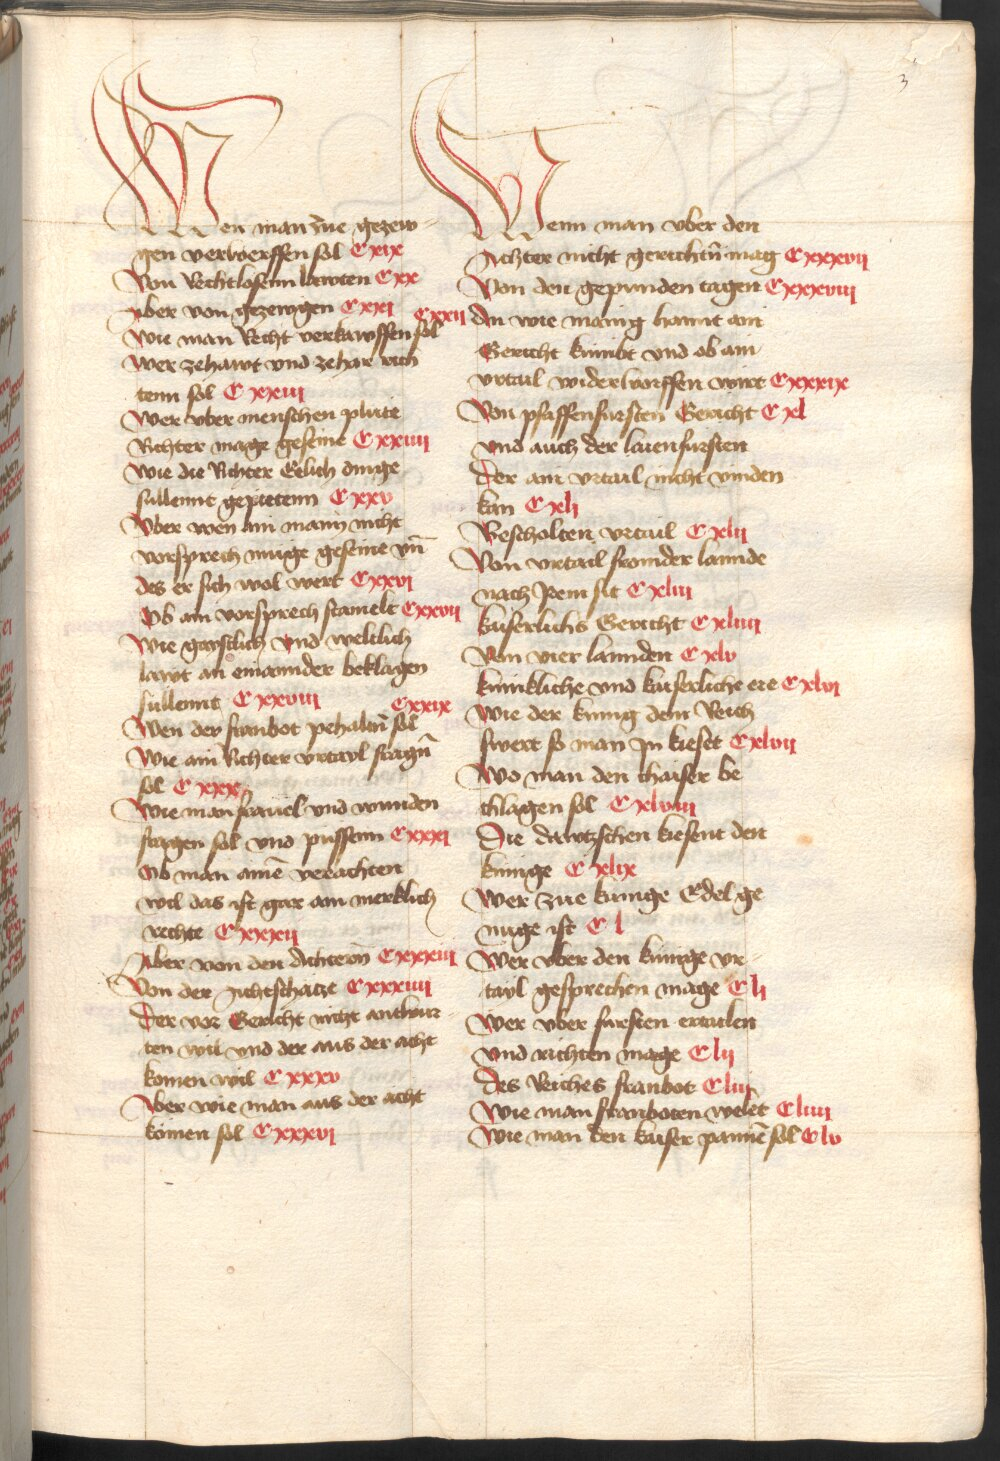 3
Wen man zue gezew-
gen verwerffen sol Cxix
Von Rechtlosenn lawten Cxx
Aber von gezewgen Cxxi
Wie man Recht verkawffen sol Cxxii
Wer zehawt vnd zehar rich
tenn sol Cxxiii
Wer vber menschen plute
Richter mage geseine Cxxiiii
Wie die Richter Eelich dinge
sullennt gepietenn Cxxv
Vber wen ain mann nicht
vorsprech muge geseine vn̄
des er sich wol wert Cxxvi
Ob ain vorsprech stamelt Cxxvii
Wie gaistlich vnd weltlich
lawt an einannder beklagen
sullennt Cxxviii
Wen der franbot pehaltn̄ sol Cxxix
Wie ain Richter vrtayl fragn̄
sol Cxxx
Wie man frauel vnd wunden
fragen sol vnd pussenn Cxxxi
Ob man ainē verachten
wil das ist gar ain merklich
rechte Cxxxii
Aber von den Achteren̄ Cxxxiii
Von der Achtschatze Cxxxiiii
Der vor Gericht nicht anttwur-
ten wil vnd der aus der acht
komen wil Cxxxv
Aber wie man aus der acht
komen sol Cxxxvi
Wenn man vber den
Achter nicht gerichtn̄ mag Cxxxvii
Von den gepunden tagen Cxxxviii
An wie maing hannt ain
Gericht kumbt vnd ob ain
vrtail widerworffen wirt Cxxxix
Von pfaffenfursten Gericht Cxl
vnd auch der laienfursten
Der ain vrtail nicht vinden
kan Cxli
Bescholten vrtail Cxlii
Von vrtail fromder lannde
nach Irem sit Cxliii
kaiserlichs Gericht Cxliiii
Von vier lannden Cxlv
kunikliche vnd kaiserliche ere Cxlvi
Wie der kunig dem Reich
swert so man In kieset Cxlvii
Wo man den chaiser be
chlagen sol Cxlviii
Die dawtzschen kiesent den
kunige Cxlix
Wer zue kunige Edel ge
nuge ist Cl
Wer vber den kunige vr-
tayl gesprechen mage Cli
Wer vber fursten ertailen
vnd richten mage Clii
Des Reiches franbot Cliii
Wie man franboten welet Cliiii
Wie man den kaiser pannē sol Clv